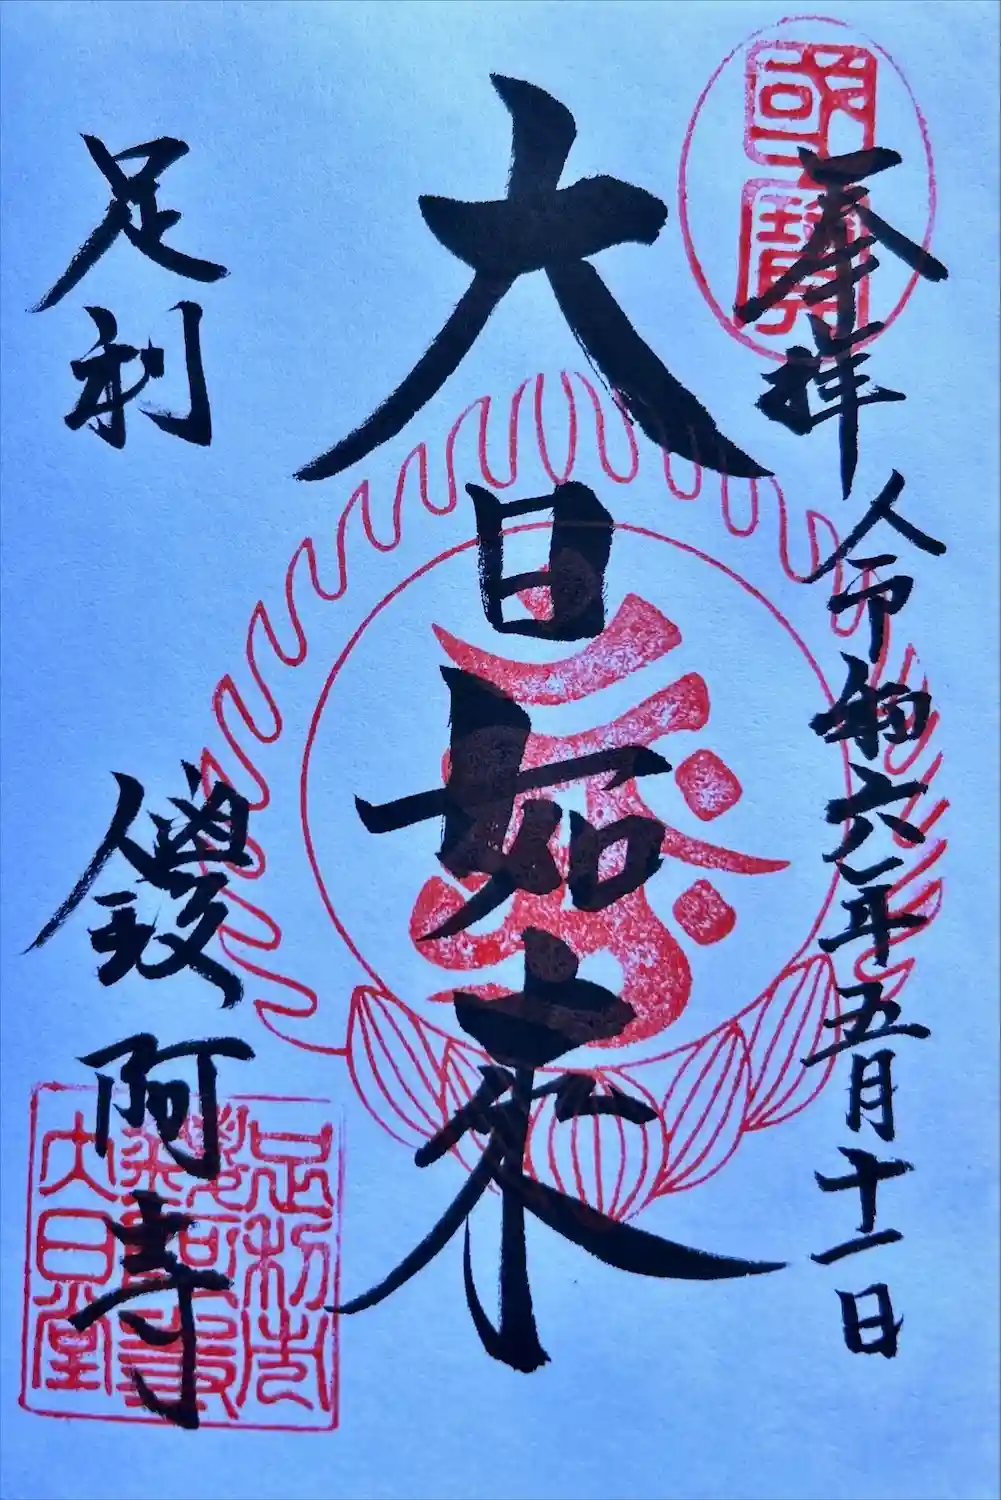 國寶
奉拝
令和六年五月十一日
大日如来
足利
鑁阿寺
足利市
鑁阿寺
大日堂